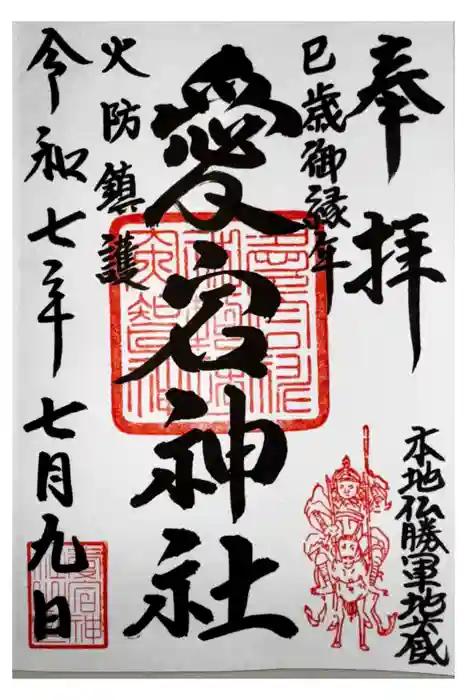 奉拝
本地仏勝軍地蔵
巳歳御縁年
愛宕神社
火防鎮護
令和七年七月九日